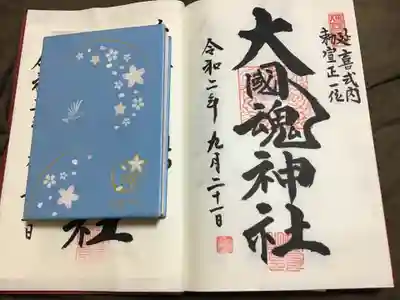 延喜式内
勅宣正一位
大國魂神社
令和二年九月二十一日
社
日